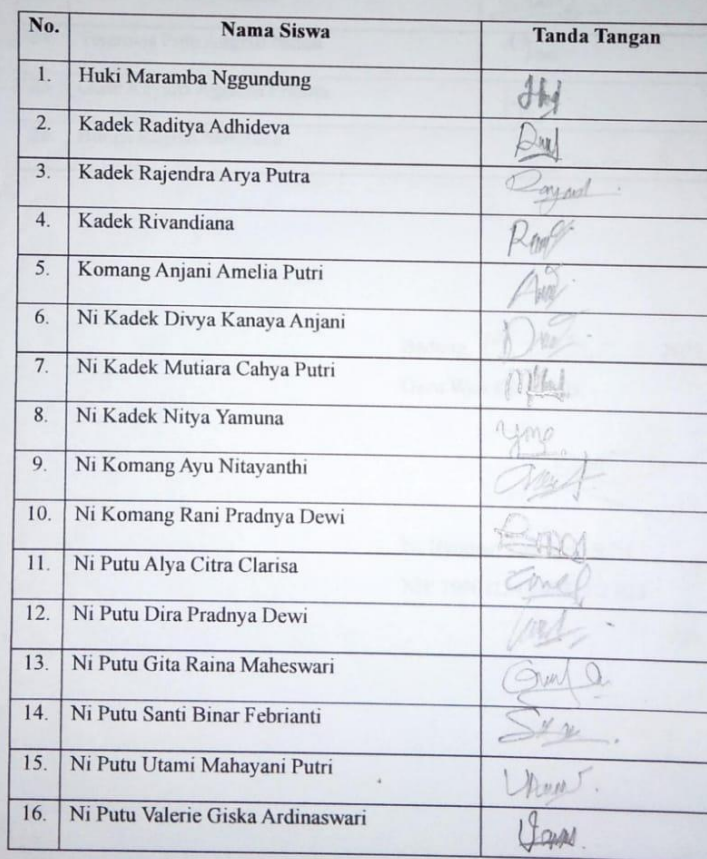 No. Nama Siswa Tanda Tangan
1. Huki Maramba Nggundung
2. Kadek Raditya Adhideva
3. Kadek Rajendra Arya Putra
4. Kadek Rivandiana
5. Komang Anjani Amelia Putri
6. Ni Kadek Divya Kanaya Anjani
7. Ni Kadek Mutiara Cahya Putri
8. Ni Kadek Nitya Yamuna
9. Ni Komang Ayu Nitayanthi
10. Ni Komang Rani Pradnya Dewi
11. Ni Putu Alya Citra Clarisa
12. Ni Putu Dira Pradnya Dewi
13. Ni Putu Gita Raina Maheswari
14. Ni Putu Santi Binar Febrianti
15. Ni Putu Utami Mahayani Putri
16. Ni Putu Valerie Giska Ardinaswari